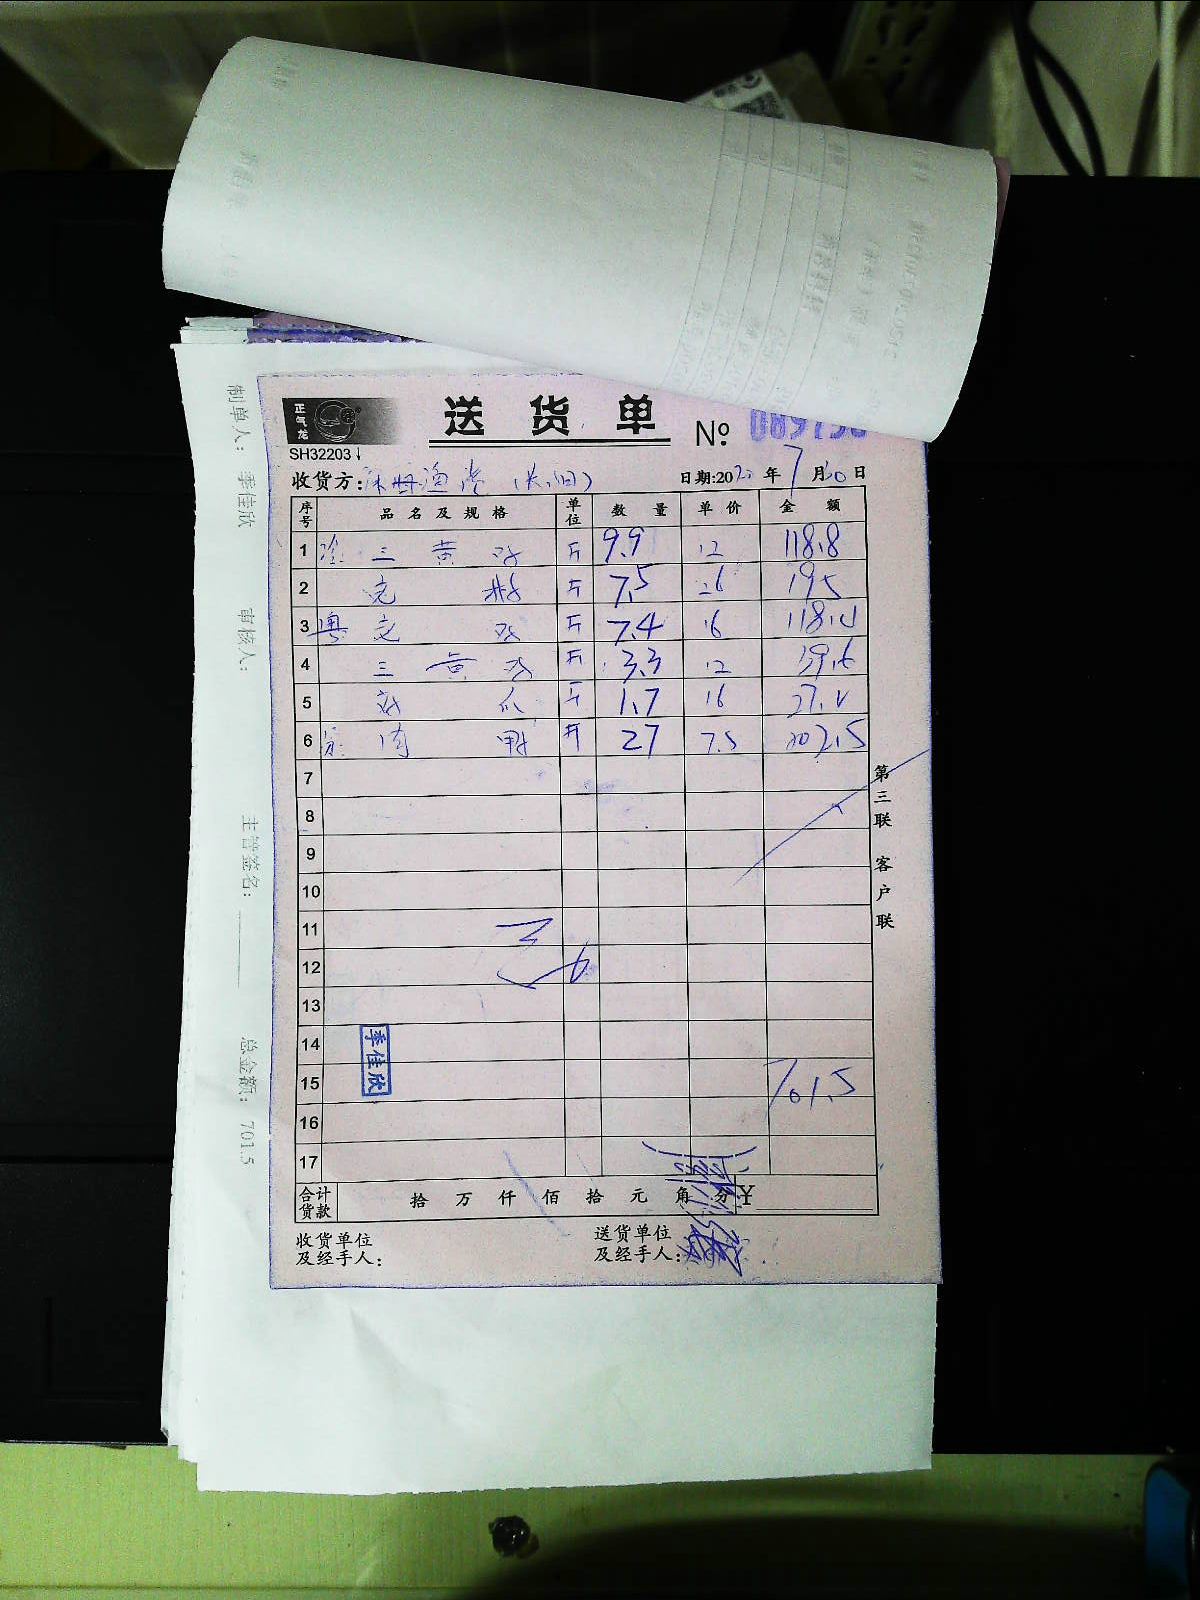 正气龙
送货单 №
SH32203
收货方: 日期:2020年7月 日
序号 品名及规格 单位 数量 单价 金额
1 三黄鸡 斤 9.9 12 118.8
2 斤 7.5 26 195
3 粤 斤 7.4 16 118.4
4 三黄鸡 斤 3.3 12 39.6
5 鸡爪 斤 1.7 16 27.2
6 肉鸭 斤 27 7.5 202.5
7
8
9
10
11
12
13
14
15 701.5
16
17
季佳欣
合计货款 拾 万 仟 佰 拾 元 角 分 ¥
收货单位及经手人:
送货单位及经手人:
第三联 客户联
制单人: 季佳欣 审核人: 主管签名: 总金额: 701.5